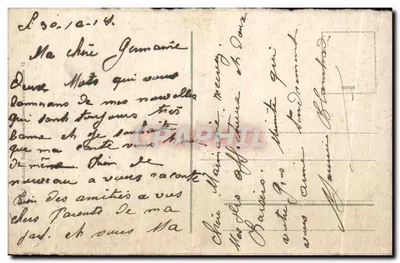 L 30-10-18
Ma chère Germaine
Deux Mots qui vous
donnans de mes nouvelles
qui sont toujours très
bonne et je souhaite
que ma carte vous
de même Rien de
nouveau a vous raconte
Rien des amitiés a vos
chers Parents de ma
part et vous Ma
chère Marraine
Mes plus affectueux et doux
Baisers.
votre qui
vous aime tendrement
Maurice
CPARAMA